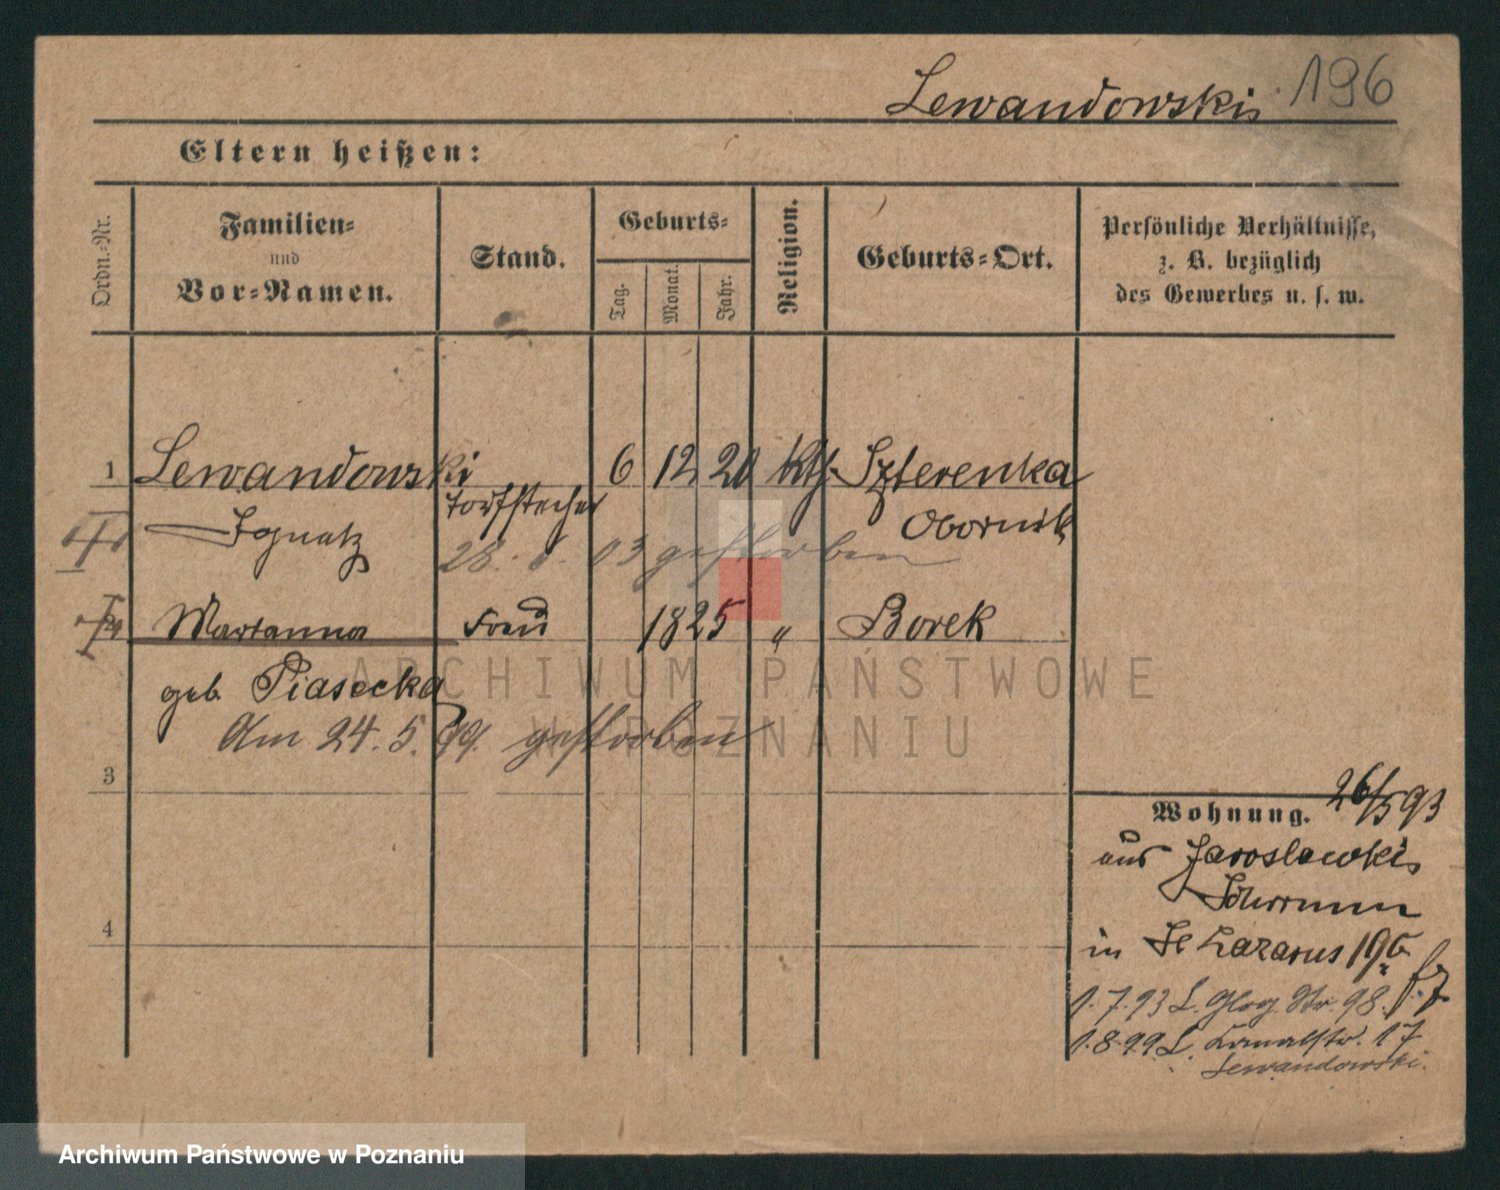 Lewandowski 196
Eltern heißen:
Ordn.-Nr.
Familien-
und
Vor-Namen.
Stand.
Geburts-
Tag.
Monat.
Jahr.
Religion.
Geburts-Ort.
Persönliche Verhältnisse,
z. B. bezüglich
des Gewerbes u. s. w.
1 Lewandowski 6 12 20 kth. Szterenka
Torfstecher
Ignatz Obornik
28. 03 gestorben
Marianna Frau 1825 " Borek
geb. Piasecka
Am 24. 5. 99. gestorben
3
Wohnung. 26/5 93
aus Jaroslawki
Schrimm
in St Lazarus 196
1. 7. 93 L. Glog. Str. 98.
1. 8. 99. L. Kanalstr. 17
Lewandowski.
4
ARCHIWUM PAŃSTWOWE
W POZNANIU
Archiwum Państwowe w Poznaniu